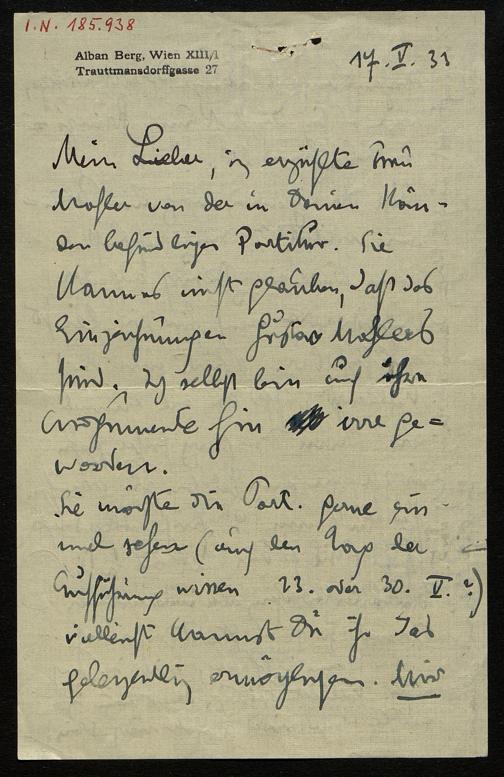 I.N. 185.938
Alban Berg, Wien XIII/1
Trauttmansdorffgasse 27
17. V. 33
Mein Lieber, ich erzählte Frau
Mahler von der in Deinen Hän-
den befindlichen Partitur. Sie
kann es nicht glauben, daß das
Einzeichnungen Gustav Mahlers
sind. Ich selbst bin auf ihre
Argumente hin irre ge=
worden.
Sie möchte die Part. gerne ein-
mal sehen (auch den Tag der
Aufführung wissen 23. oder 30. V.?)
vielleicht kannst Du ihr das
gelegentlich ermöglichen. Wir